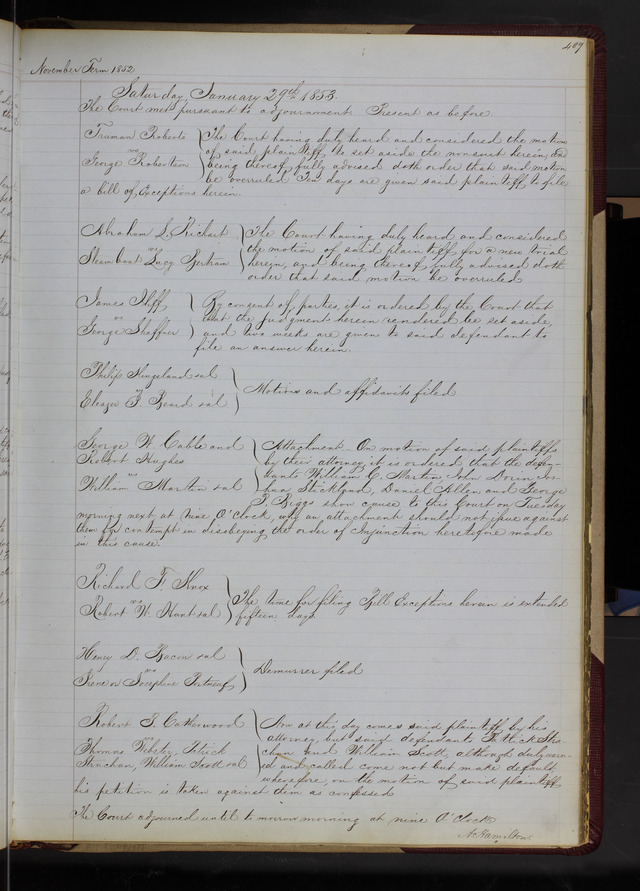 407
November Term 1852
Saturday, January 29th 1853.
The Court met pursuant to adjournment Present as before.
Truman Roberts
vs
George Robertson
The Court having duly heard and considered the motion
of said plaintiff to set aside the nonsuit herein, and
being thereof fully advised doth order that said motion
be overruled Ten days are given said plaintiff to file
a bill of Exceptions herein.
Abraham S. Richart
vs
Steam boat Lucy Bertram
The Court having duly heard and considered
the motion of said plaintiff for a new trial
herein, and being thereof fully advised doth
order that said motion be overruled
James Iliff
vs
George Shaffner
By consent of parties, it is ordered by the Court that
that the judgment herein rendered be set aside,
and two weeks are given to said defendant to
file an answer herein.
Philip Slingeland et al
vs
Eleazer F. Beard et al
Motions and affidavits filed
George W. Cable and
Robert Hughes
vs
William Martin et al
Attachment - On motion of said plaintiffs
by their attorney, it is ordered that the defen-
dants William C. Martin John Doren Jos-
hua Stickland, Daniel Allen and George
T. Biggs show cause to this Court on Tuesday
morning next at Nine O'Clock, why an attachment should not issue against
them for contempt in disobeying the order of Injunction heretofore made
in this cause.
Richard F. Knox
vs
Robert W. Hunt et al
The time for filing Bill Exceptions herein is extended
fifteen days
Henry D. Bacon et al
vs
Irene or Josephine
Demurrer filed
Robert T. Catherwood
vs
Thomas Webster, Patick
Strachan, William Scott et al
Now at this day comes said plaintiff by his
attorney, but said defendants Patick Stra-
chan and William Scott although duly warn-
ed and called come not but make default,
wherefore on the motion of said plaintiff
his petition is taken against them as confessed
The Court adjourned until to morrow morning at nine O'Clock
A. Hamilton